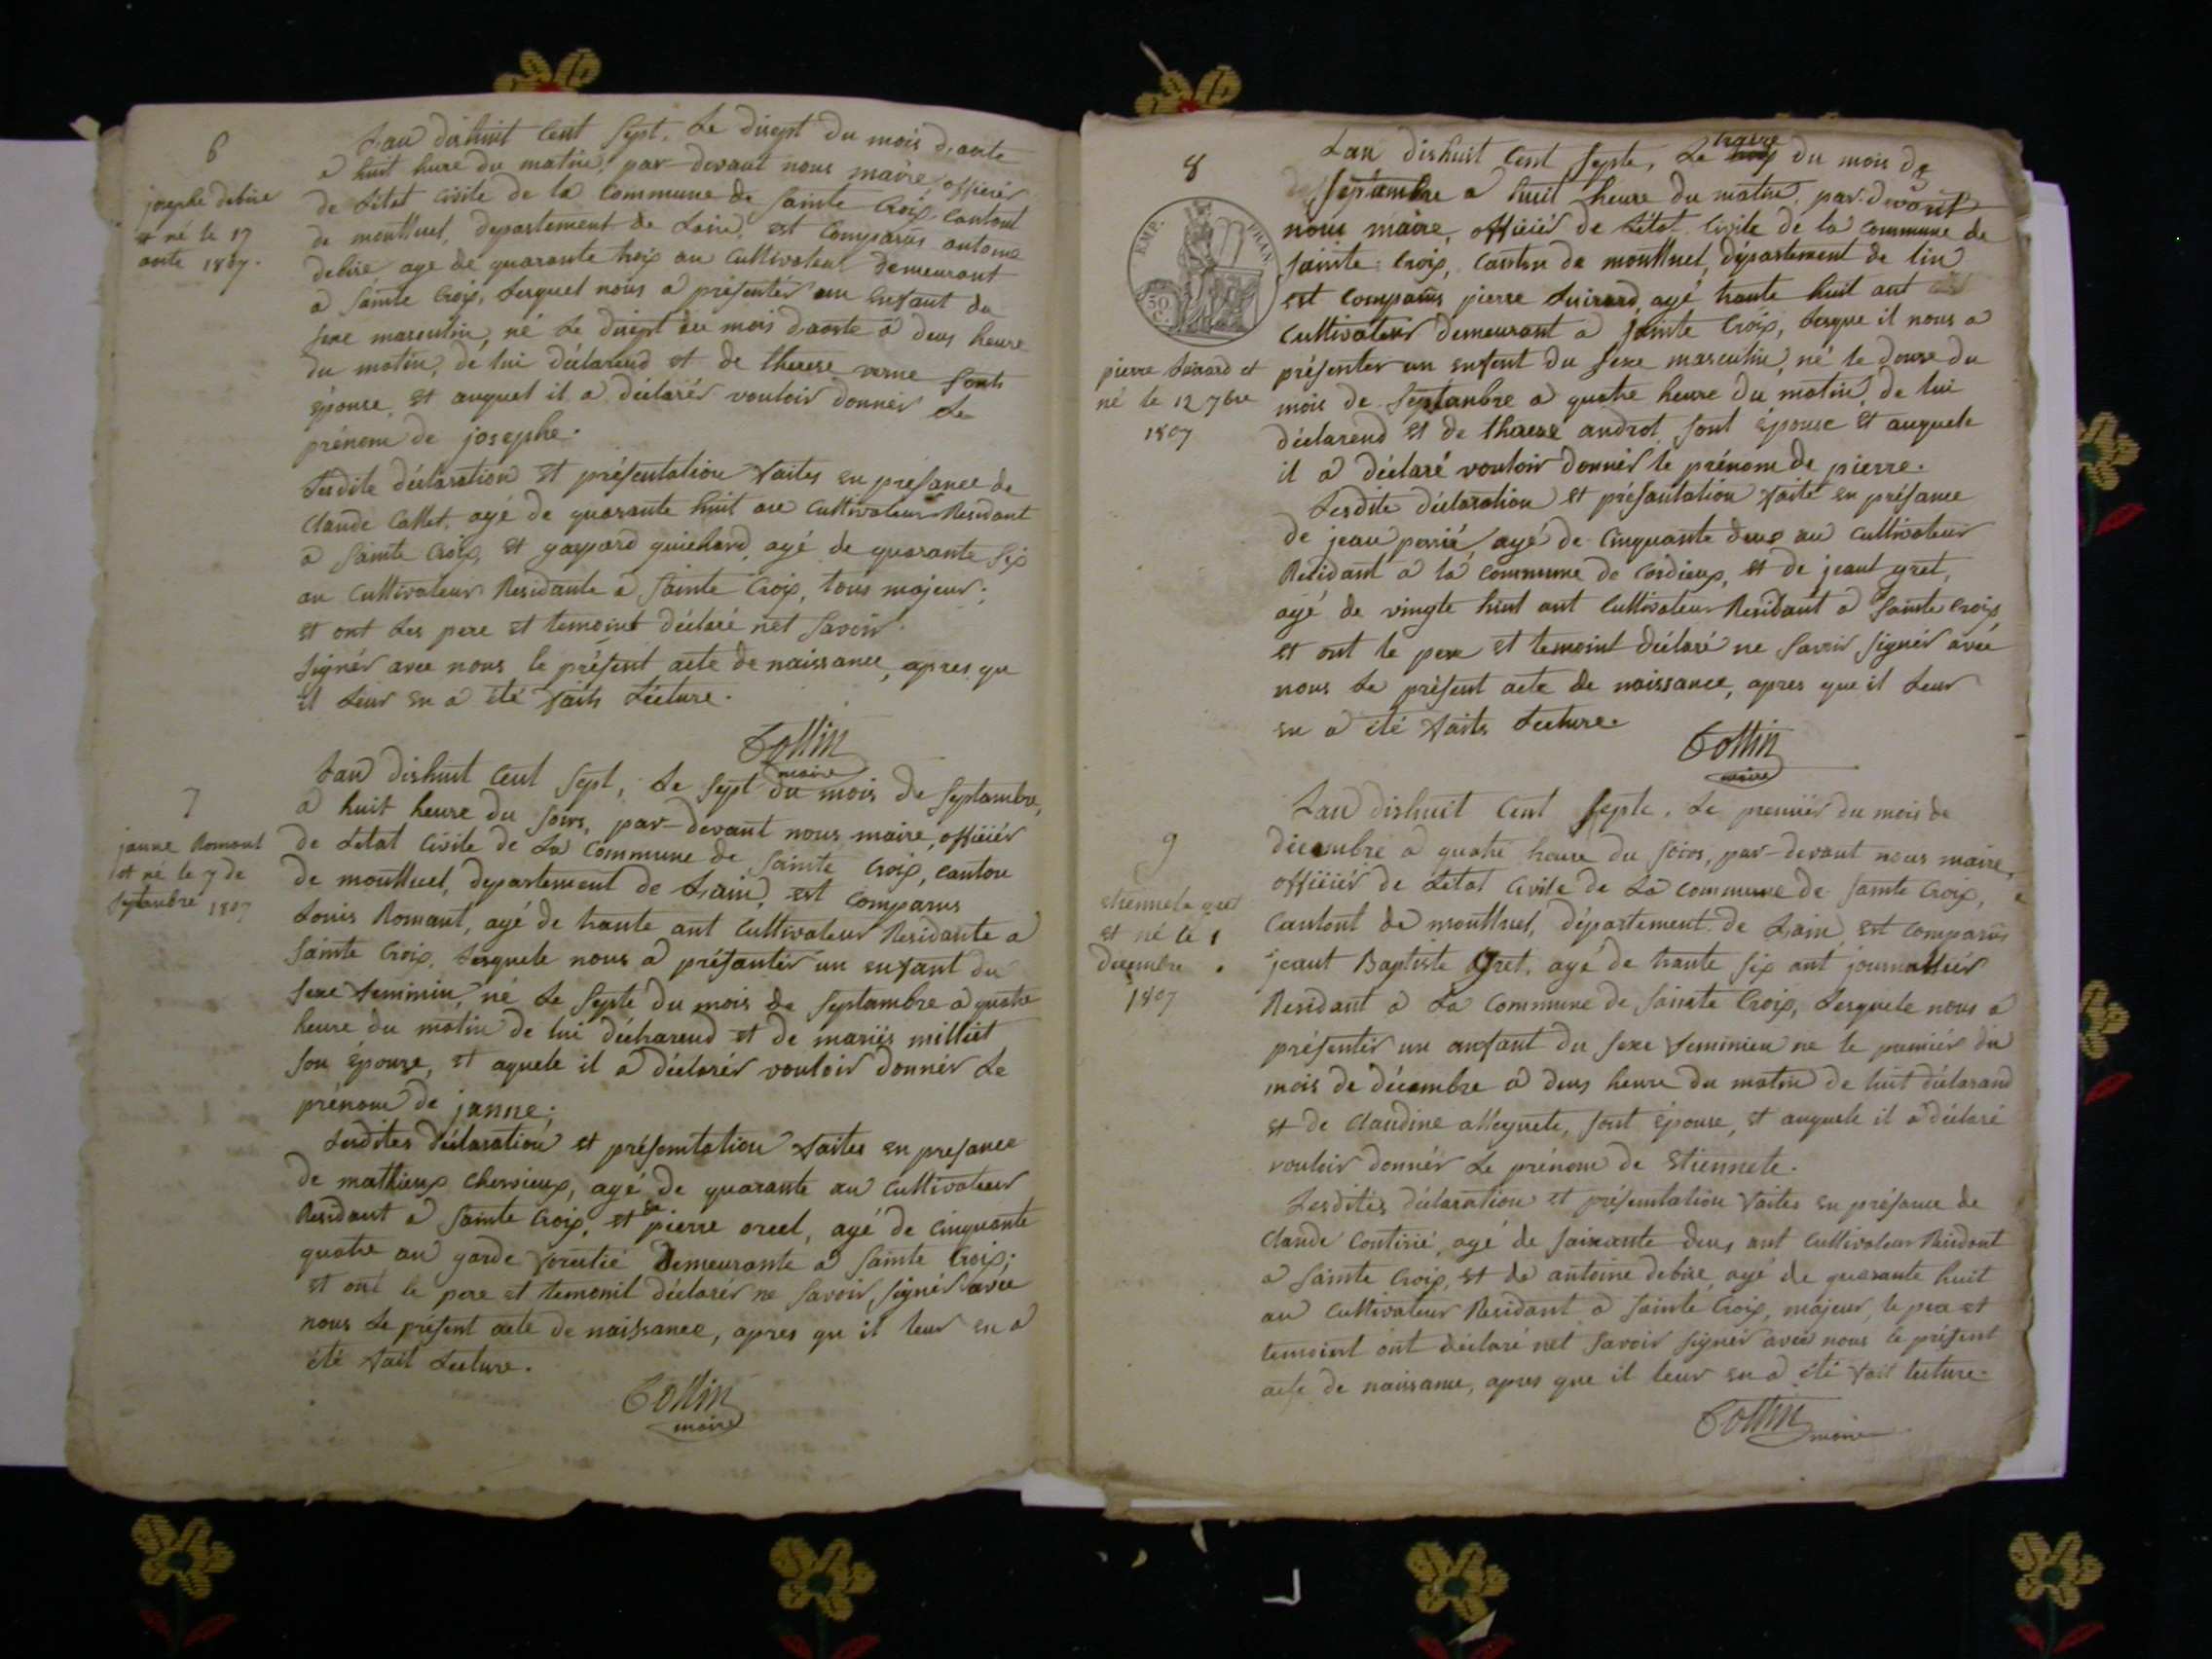 6
josephe debise
et né le 17
aoste 1807.
Lan dishuit Cent Sept. Le disept du mois daoste
a huit hure du matin, par-devant nous maire, officiér
de Létat Civile de la Commune de Sainte Croix, Cantont
de montluel, departement de Lain, est Comparus antoine
debise age de quarante trois an Cultivateur demeurant
a Sainte Croix, Lesquel nous a présentér un Enfant du
sexe masculin, né Le disept du mois daoste a deus heure
du matin, de lui déclarend et de therese verne sont
épouse, et auquel il a déclarér vouloir donnér Le
prénom de josephe.
Lesdite déclaration et présentation faites en presance de
Claude Collet, agé de quarante huit ans Cultivateur Residant
a Sainte Croix, et gaspard guichard, agé de quarante six
an Cultivateur Residante a Sainte Croix, tous majeur;
et ont Les pere et temoint déclaré net Savoir
Signér avec nous le présent acte de naissance, apres qu
il Leur en a été faits Lecture.
Collin
maire
7
janne Romant
et né le 7 de
Septanbre 1807
Lan dishuit Cent Sept, Le Sept du mois de Septambre,
a huit heure du Soirs, par-devant nous maire, officiér
de Létat Civile de La Commune de Sainte Croix, canton
de montluel, departement de Lain, est Comparus
Louis Romant, agé de trante ant Cultivateur Residante a
Sainte Croix, Lesquele nous a présantér un enfant du
Sexe feminin, né Le Septe du mois de Septambre a quatre
heure du matin de lui déclarend et de mariés milliet
Son épouse, et aquele il a déclarér vouloir donnér Le
prénom de janne;
Lesdites déclaration et présentation faites en presance
de mathieux Chervieux, agé de quarante an Cultivateur
Residant a Sainte Croix, et de pierre orcel, agé de Cinquante
quatre an garde forestié demeurante a Sainte Croix;
et ont le pere et temoint déclarér ne Savoir Signér avec
nous Le présent acte de naissance, apres qu il leur en a
été fait Lecture.
Collin
maire
8
EMP. FRAN.
50 C.
pierre Luirard et
né le 12 7bre
1807
Lan dishuit Cent Septe, Le traise du mois de
Septambre a huit heure du matin, par-devant
nous maire, officiér de Létat Civile de la Commune de
Sainte Croix, Canton de montluel, département de lin
est Comparus pierre Luirard, agé trante huit ant
Cultivateur demeurant a Sainte Croix, Lesque il nous a
présenter un enfent du Sexe masculin, né le douse du
mois de Septanbre a quatre heure du matin, de lui
déclarend et de therese androt Sont épouse et auquele
il a déclaré vouloir donnér le prénom de pierre.
Lesdite déclaration et présantation faite en présance
de jean perrié, agé de Cinquante deus an Cultivateur
Résidant a la Commune de Cordieux, et de jeant gret,
agé de vingte huit ant Cultivateur Residant a Sainte Croix,
et ont le pere et temoint déclaré ne Savoir Signér avec
nous Le présent acte de naissance, apres que il Leur
en a été faits Lecture.
Collin
maire
9
etiennete gret
et né le 1
decembre
1807
Lan dishuit Cent Septe, Le premiér du mois de
décembre a quatre heure du Soirs, par-devant nous maire,
officiér de Létat Civile de La Commune de Sainte Croix,
Cantont de montluel, département de Lain est Comparus
jeant Baptiste Gret, agé de trante Six ant journalliér
Residant a La Commune de Sainte Croix, Lesquele nous a
présentér un anfant du Sexe feminien ne le premiér du
mois de décembre a deus heure du matin de luit déclarand
et de Claudine allegnete, Sont épouse, et auquele il a déclaré
vouloir donnér Le prénom de Etiennete.
Lesdites déclaration et présentation faites en présance de
Claude Contirié, agé de Soixante deus ant Cultivateur Residant
a Sainte Croix, et de antoine debise, agé de quarante huit
an Cultivateur Residant a Sainte Croix, majeur, le pere et
temoint ont déclaré net Savoir Signér avec nous le présent
acte de naissance, apres que il leur en a été fait lecture.
Collin maire